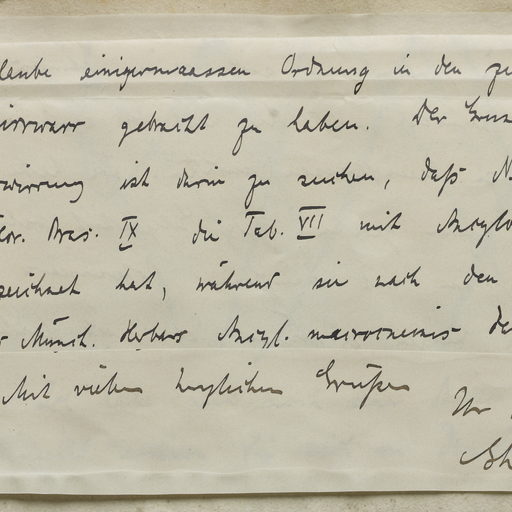 laube einigermaassen Ordnung in den
irrwarr gebracht zu haben. Der
wirrung ist darin zu suchen, daß
lor. Bras. IX die Tab. VII mit Ancylo
zeichnet hat, während sie nach den
Münch. Herbars Ancyl. macrocnemis
Mit vielen herzlichen Grüßen
Ihr